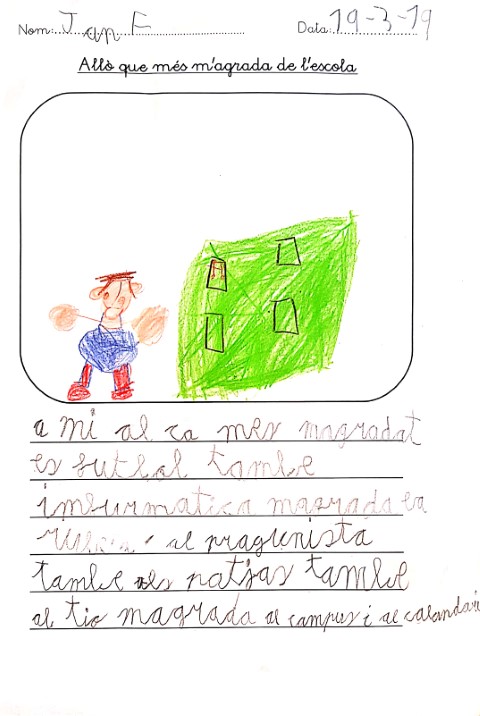 Nom: Jan F Data: 19-3-19
Allò que més m'agrada de l'escola
a mi al ca mes magradat
es butbal tambe
imfurmatica magrada la
al pragunista
tambe als patjas tambe
al tio magrada al campus i al calandari